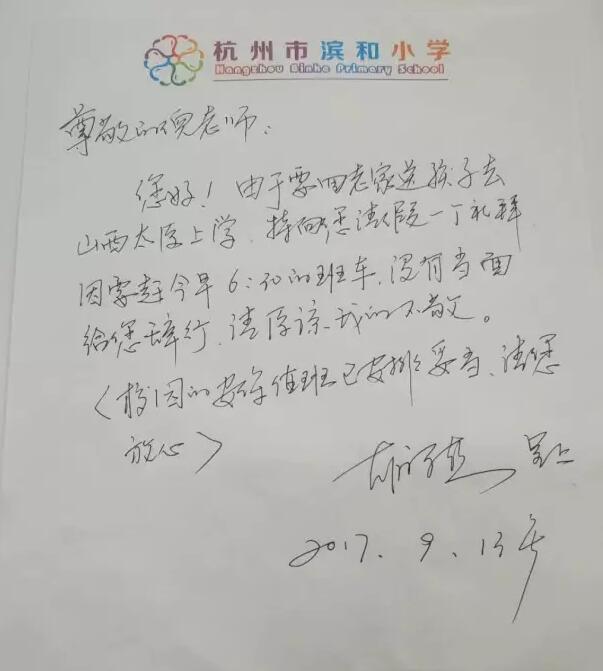 杭州市滨和小学
Hangzhou Binhe Primary School
尊敬的倪老师：
您好！由于要回老家送孩子去
山西太原上学，特向您请假一个礼拜
因需赶今早6:50的班车，没有当面
给您辞行，请原谅我的不敬。
（校园的安保值班已安排妥当，请您
放心）
呈上
2017.9.13号